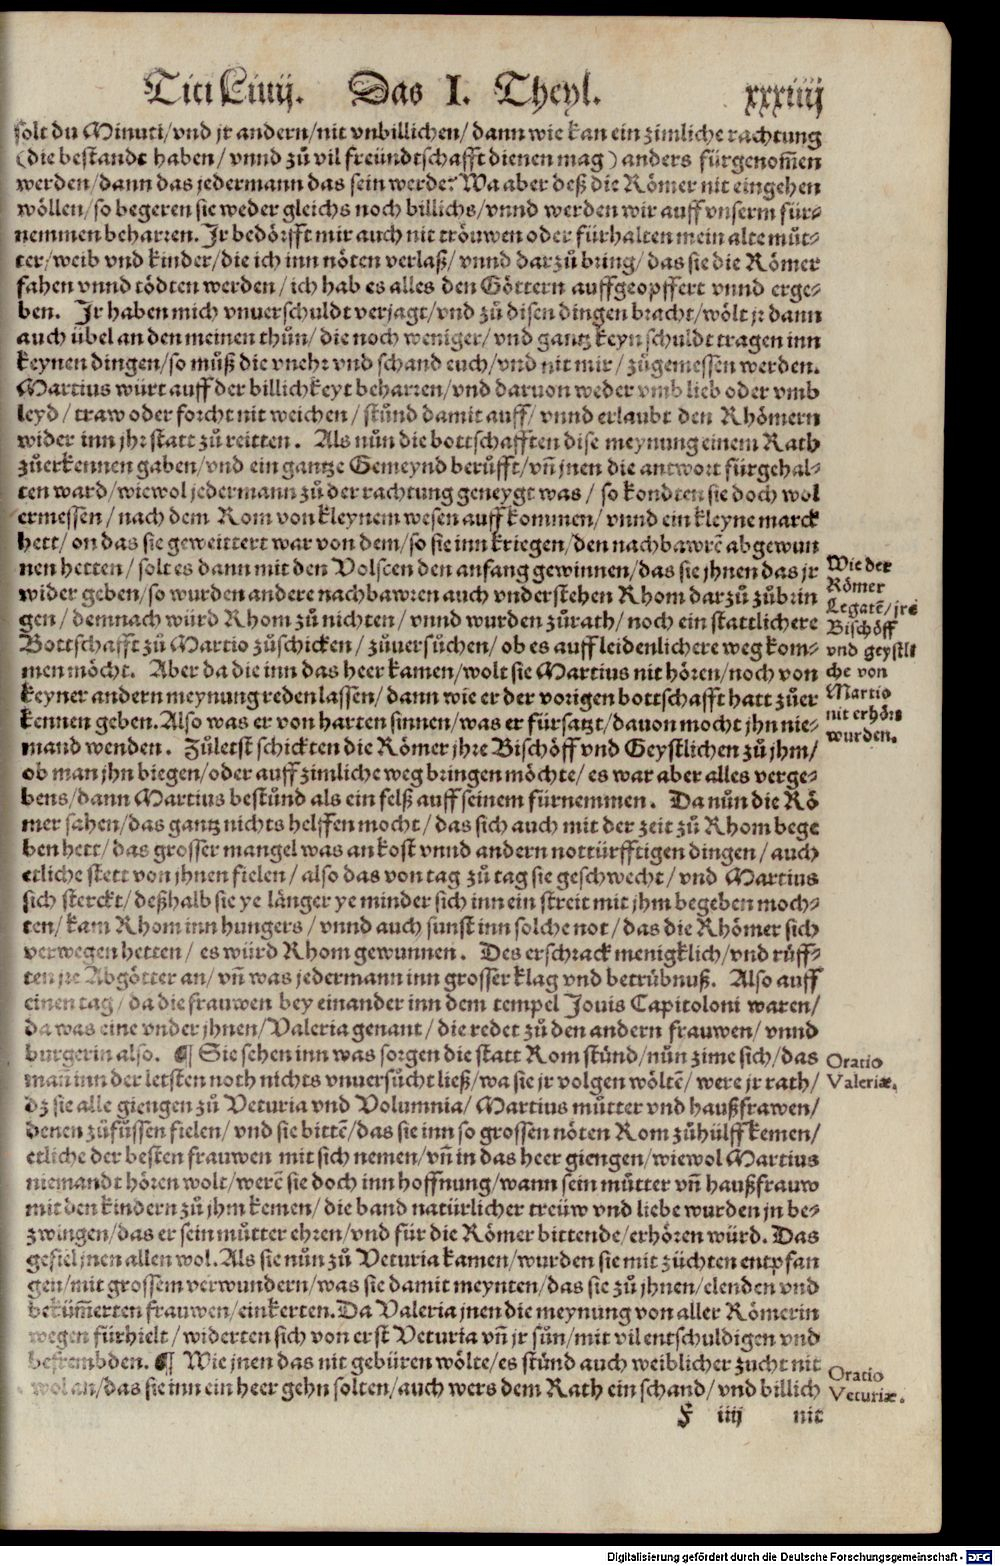 Titi Liuij. Das I. Theyl. xxxiiij
solt du Minuti/vnd jr andern/nit vnbillichen/dann wie kan ein zimliche rachtung
(die bestandt haben/vnnd zů vil freündtschafft dienen mag) anders fürgenom̃en
werden/dann das jedermann das sein werde? Wa aber deß die Römer nit eingehen
wöllen/so begeren sie weder gleichs noch billichs/vnnd werden wir auff vnserm für-
nemmen beharren. Jr bedörfft mir auch nit tröuwen oder fürhalten mein alte můt-
ter/weib vnd kinder/die ich inn nöten verlaß/vnnd darzů bring/das sie die Römer
fahen vnnd tödten werden/ich hab es alles den Göttern auffgeopffert vnnd erge-
ben. Jr haben mich vnuerschuldt verjagt/vnd zů disen dingen bracht/wölt jr dann
auch übel an den meinen thůn/die noch weniger/vnd gantz keyn schuldt tragen inn
keynen dingen/so můß die vnehr vnd schand euch/vnd nit mir/zůgemessen werden.
Martius würt auff der billichkeyt beharren/vnd daruon weder vmb lieb oder vmb
leyd/traw oder forcht nit weichen/stůnd damit auff/vnnd erlaubt den Rhömern
wider inn jhr statt zů reitten. Als nůn die bottschafften dise meynung einem Rath
zůerkennen gaben/vnd ein gantze Gemeynd berůfft/vñ jnen die antwort fürgehal-
ten ward/wiewol jedermann zů der rachtung geneygt was/so kondten sie doch wol
ermessen/nach dem Rom von kleynem wesen auff kommen/vnnd ein kleyne marck
hett/on das sie geweittert war von dem/so sie inn kriegen/den nachbawrẽ abgewun
nen hetten/solt es dann mit den Volscen den anfang gewinnen/das sie jhnen das jr
wider geben/so wurden andere nachbawren auch vnderstehen Rhom darzů zůbrin
gen/demnach würd Rhom zů nichten/vnnd wurden zůrath/noch ein stattlichere
Bottschafft zů Martio zůschicken/zůuersůchen/ob es auff leidenlichere weg kom-
men möcht. Aber da die inn das heer kamen/wolt sie Martius nit hören/noch von
keyner andern meynung reden lassen/dann wie er der vorigen bottschafft hatt zůer
kennen geben. Also was er von harten sinnen/was er fürsatzt/dauon mocht jhn nie-
mand wenden. Zůletst schickten die Römer jhre Bischöff vnd Geystlichen zů jhm/
ob man jhn biegen/oder auff zimliche weg bringen möchte/es war aber alles verge-
bens/dann Martius bestůnd als ein felß auff seinem fürnemmen. Da nůn die Rö
mer sahen/das gantz nichts helffen mocht/das sich auch mit der zeit zů Rhom bege
ben hett/das grosser mangel was an kost vnnd andern nottürfftigen dingen/auch
etliche stett von jhnen fielen/also das von tag zů tag sie geschwecht/vnd Martius
sich sterckt/deßhalb sie ye länger ye minder sich inn ein streit mit jhm begeben moch-
ten/kam Rhom inn hungers/vnnd auch sunst inn solche not/das die Rhömer sich
verwegen hetten/es würd Rhom gewunnen. Des erschrack menigklich/vnd rüff-
ten jre Abgötter an/vñ was jedermann inn grosser klag vnd betrübnuß. Also auff
einen tag/da die frauwen bey einander inn dem tempel Jouis Capitoloni waren/
da was eine vnder jhnen/Valeria genant/die redet zů den andern frauwen/vnnd
burgerin also. ¶ Sie sehen inn was sorgen die statt Rom stůnd/nůn zime sich/das
mañ inn der letsten noth nichts vnuersůcht ließ/wa sie jr volgen wöltẽ/were jr rath/
dz sie alle giengen zů Veturia vnd Volumnia/Martius můtter vnd haußfrawen/
denen zůfüssen fielen/vnd sie bittẽ/das sie inn so grossen nöten Rom zůhülff kemen/
etliche der besten frauwen mit sich nemen/vñ in das heer giengen/wiewol Martius
niemandt hören wolt/werẽ sie doch inn hoffnung/wann sein můtter vñ haußfrauw
mit den kindern zů jhm kemen/die band natürlicher treüw vnd liebe wurden jn be-
zwingen/das er sein můtter ehren/vnd für die Römer bittende/erhören würd. Das
gefiel jnen allen wol. Als sie nůn zů Veturia kamen/wurden sie mit züchten entpfan
gen/mit grossem verwundern/was sie damit meynten/das sie zů jhnen/elenden vnd
bekům̃erten frauwen/einkerten. Da Valeria jnen die meynung von aller Römerin
wegen fürhielt/widerten sich von erst Veturia vñ jr sůn/mit vil entschuldigen vnd
befrembden. ¶ Wie jnen das nit gebüren wölte/es stůnd auch weiblicher zucht nit
wol an/das sie inn ein heer gehn solten/auch wers dem Rath ein schand/vnd billich
F iiij nit
Wie der
Römer
Legatẽ/jre
Bischöff
vnd geystli
che von
Martio
nit erhört
wurden.
Oratio
Valeriæ.
Oratio
Veturiæ.
Digitalisierung gefördert durch die Deutsche Forschungsgemeinschaft - DFG